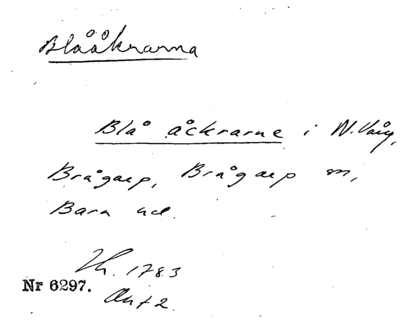 Blååkrarna
Blå åckrarne i N. Vång,
Brågarp, Brågarp sn,
Bara hd.
Lh. 1783
Nr 6297. Akt 2.